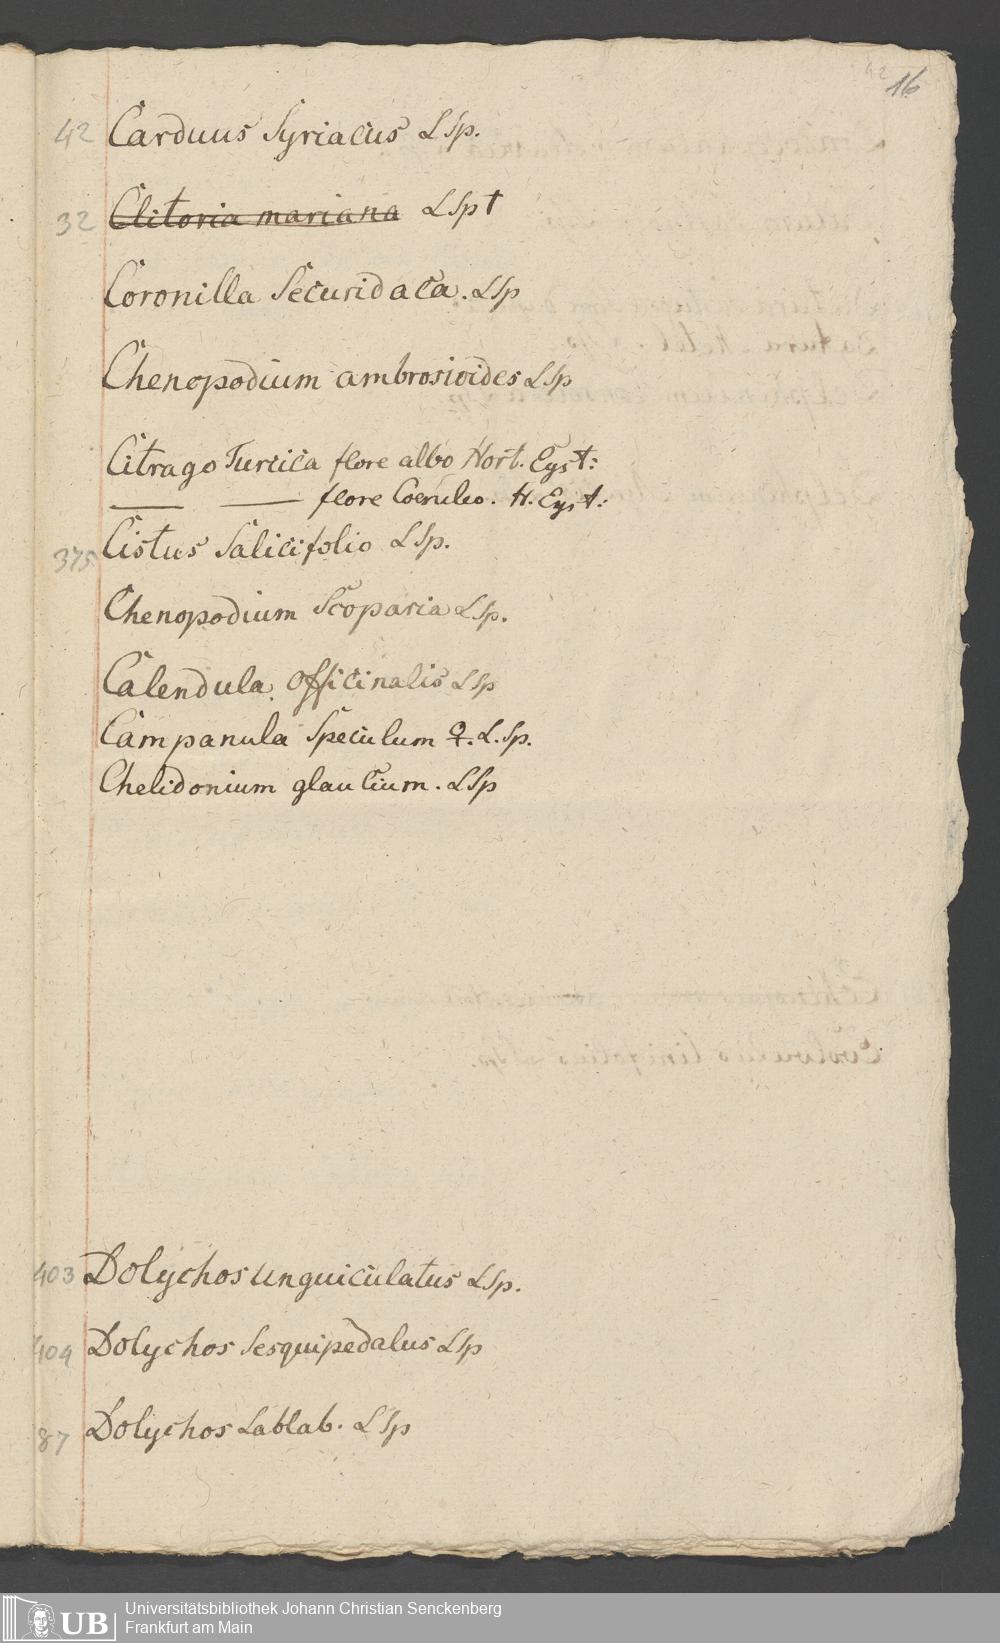 42 16
42 Carduus Syriacus LSp.
32 Clitoria mariana LSp †
Coronilla Securidaca. LSp
Chenopodium ambrosioides LSp
Citrago Turcica flore albo Hort. Eyst:
—— —— flore Coeruleo. H. Eyst:
375 Cistus Salicifolio LSp.
Chenopodium Scoparia LSp.
Calendula officinalis LSp
Campanula Speculum ♀. L.Sp.
Chelidonium glaucium. LSp
403 Dolychos unguiculatus LSp.
404 Dolychos Sesquipedalus LSp
87 Dolychos Lablab. LSp
UB Universitätsbibliothek Johann Christian Senckenberg
Frankfurt am Main